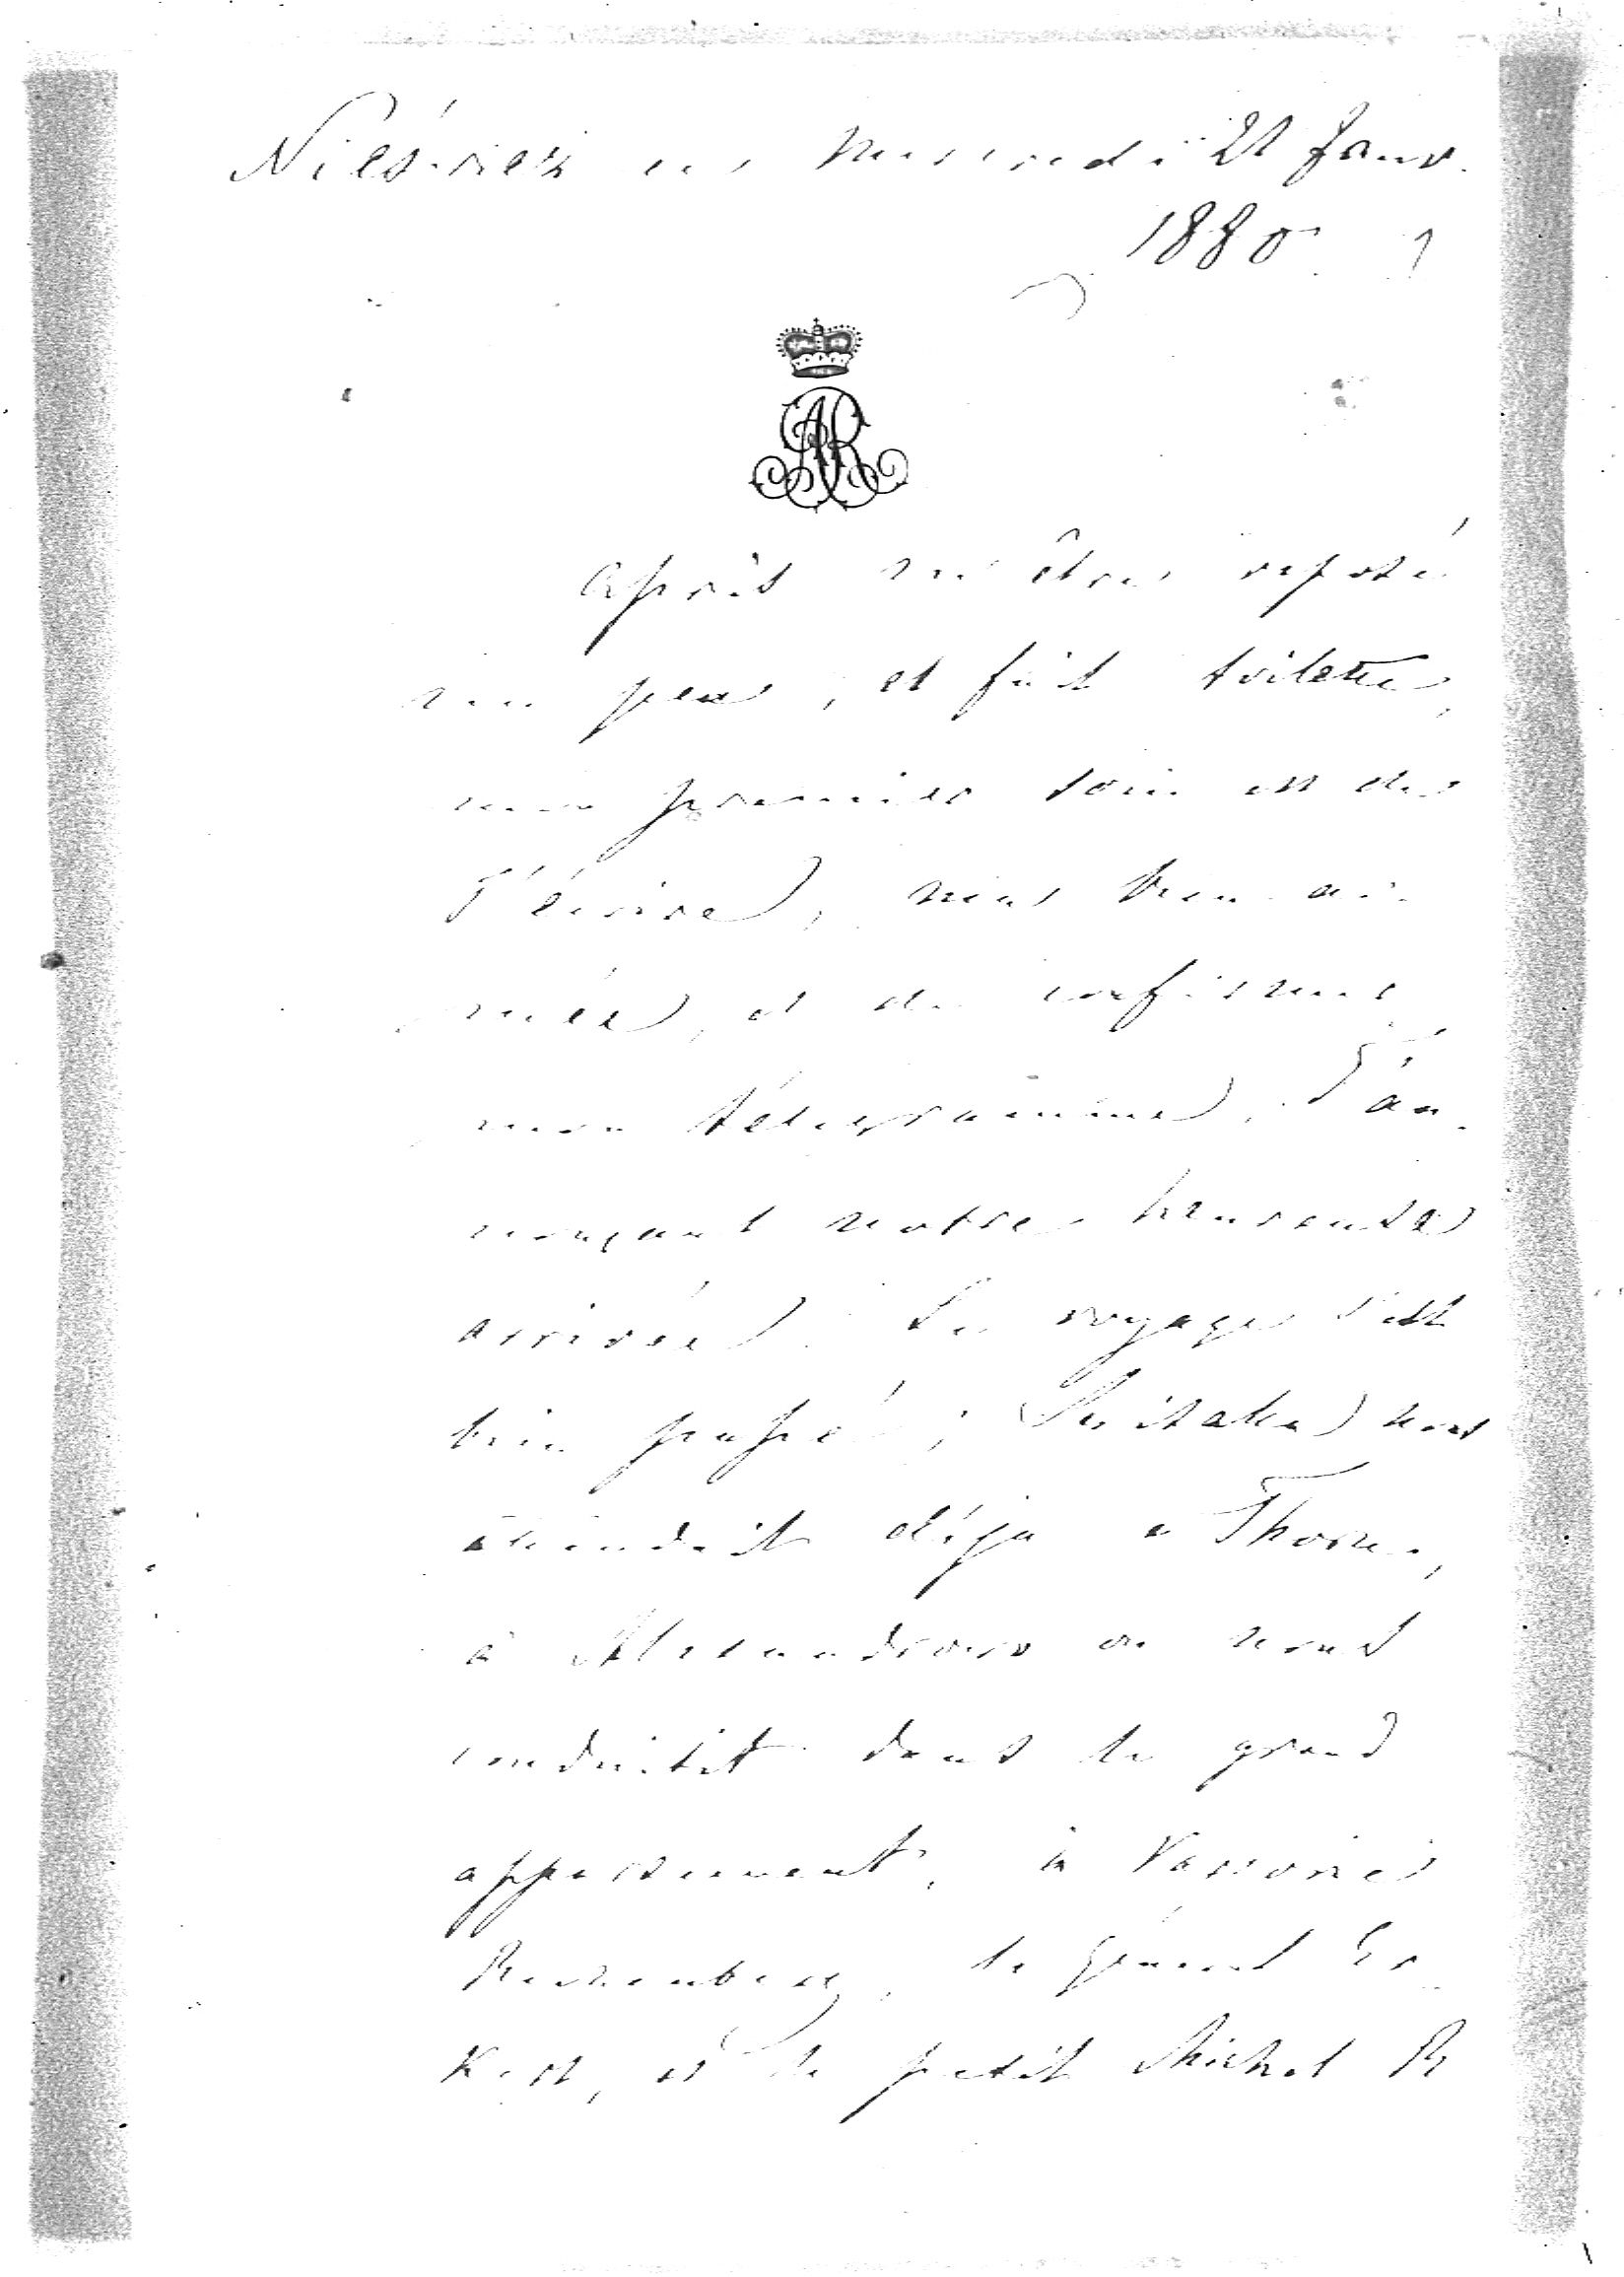 Nieśwież ce Mercredi 21 Janv.
1880
AR
Après m'être reposé
un peu, et fait toilette,
mon premier soin est de
T'écrire, ma bien ai-
mée, et de confirmer
mon télégramme, T'an-
nonçant notre heureuse
arrivée. Le voyage s'est
bien passé; nous
attendait déja a Thorn,
à Alexandrowo on nous
conduisit dans le grand
appartement, à Varsovie
le général
et le petit Michel R